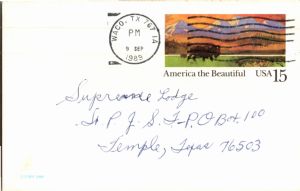 WACO, TX 767 14
PM
9 SEP
1989
America the Beautiful USA 15
Supreme Lodge
P J S F-P.O Box 100
Temple, Texas 76503